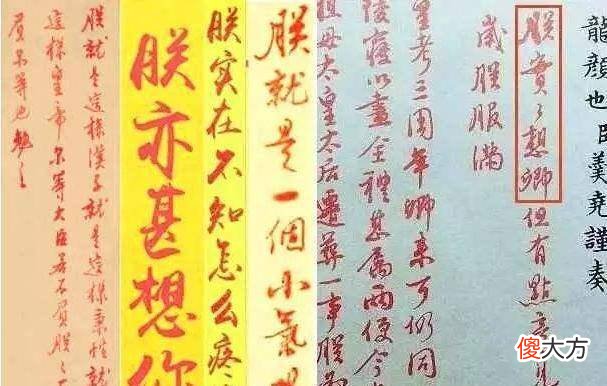 龍顏也臣羹堯謹奏
朕實々想卿但有點
服滿
皇考三周年卿來可仍同
陵寢以盡全禮甚属兩便今
祖母太皇太后遷葬一事朕
朕就是一個小氣
朕实在不知怎么疼
朕亦甚想你
朕就是這樣漢子就是這樣秉性就
這樣皇帝尔等大臣若不負朕
負尔等也勉之
傻大方